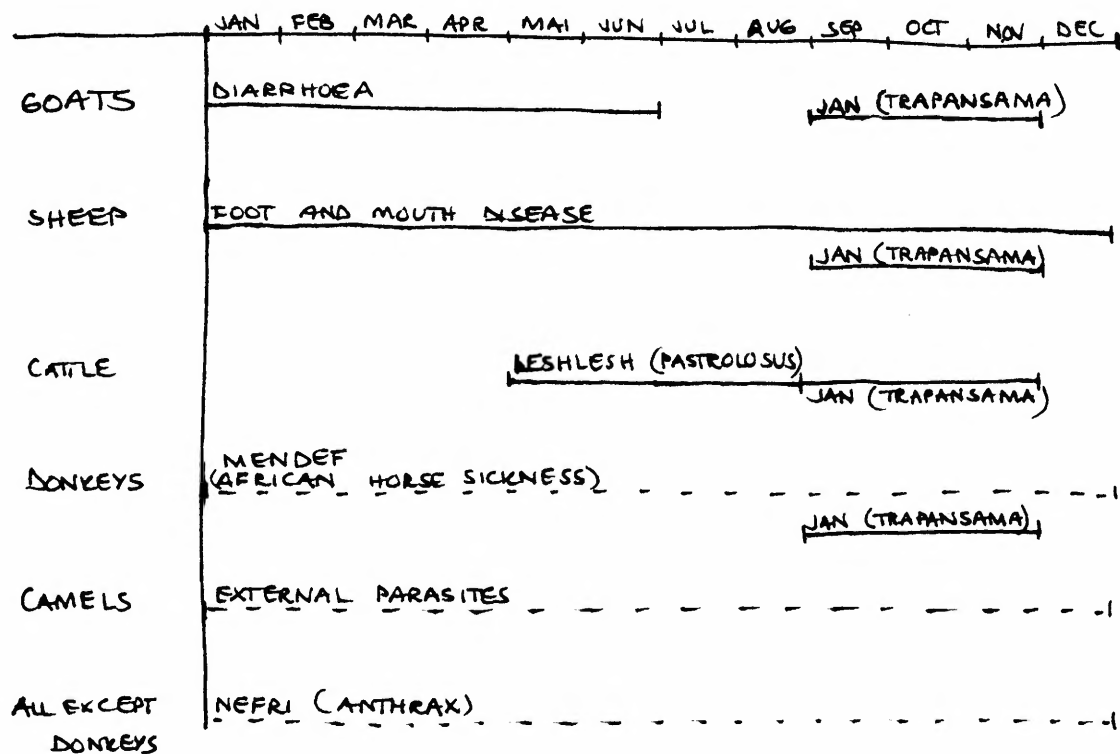 JAN FEB MAR APR MAI JUN JUL AUG SEP OCT NOV DEC
GOATS DIARRHOEA JAN (TRAPANSAMA)
SHEEP FOOT AND MOUTH DISEASE
JAN (TRAPANSAMA)
CATTLE LESHLESH (PASTROLOSUS)
JAN (TRAPANSAMA)
MENDEF
DONKEYS (AFRICAN HORSE SICKNESS)
JAN (TRAPANSAMA)
CAMELS EXTERNAL PARASITES
ALL EXCEPT NEFRI (ANTHRAX)
DONKEYS